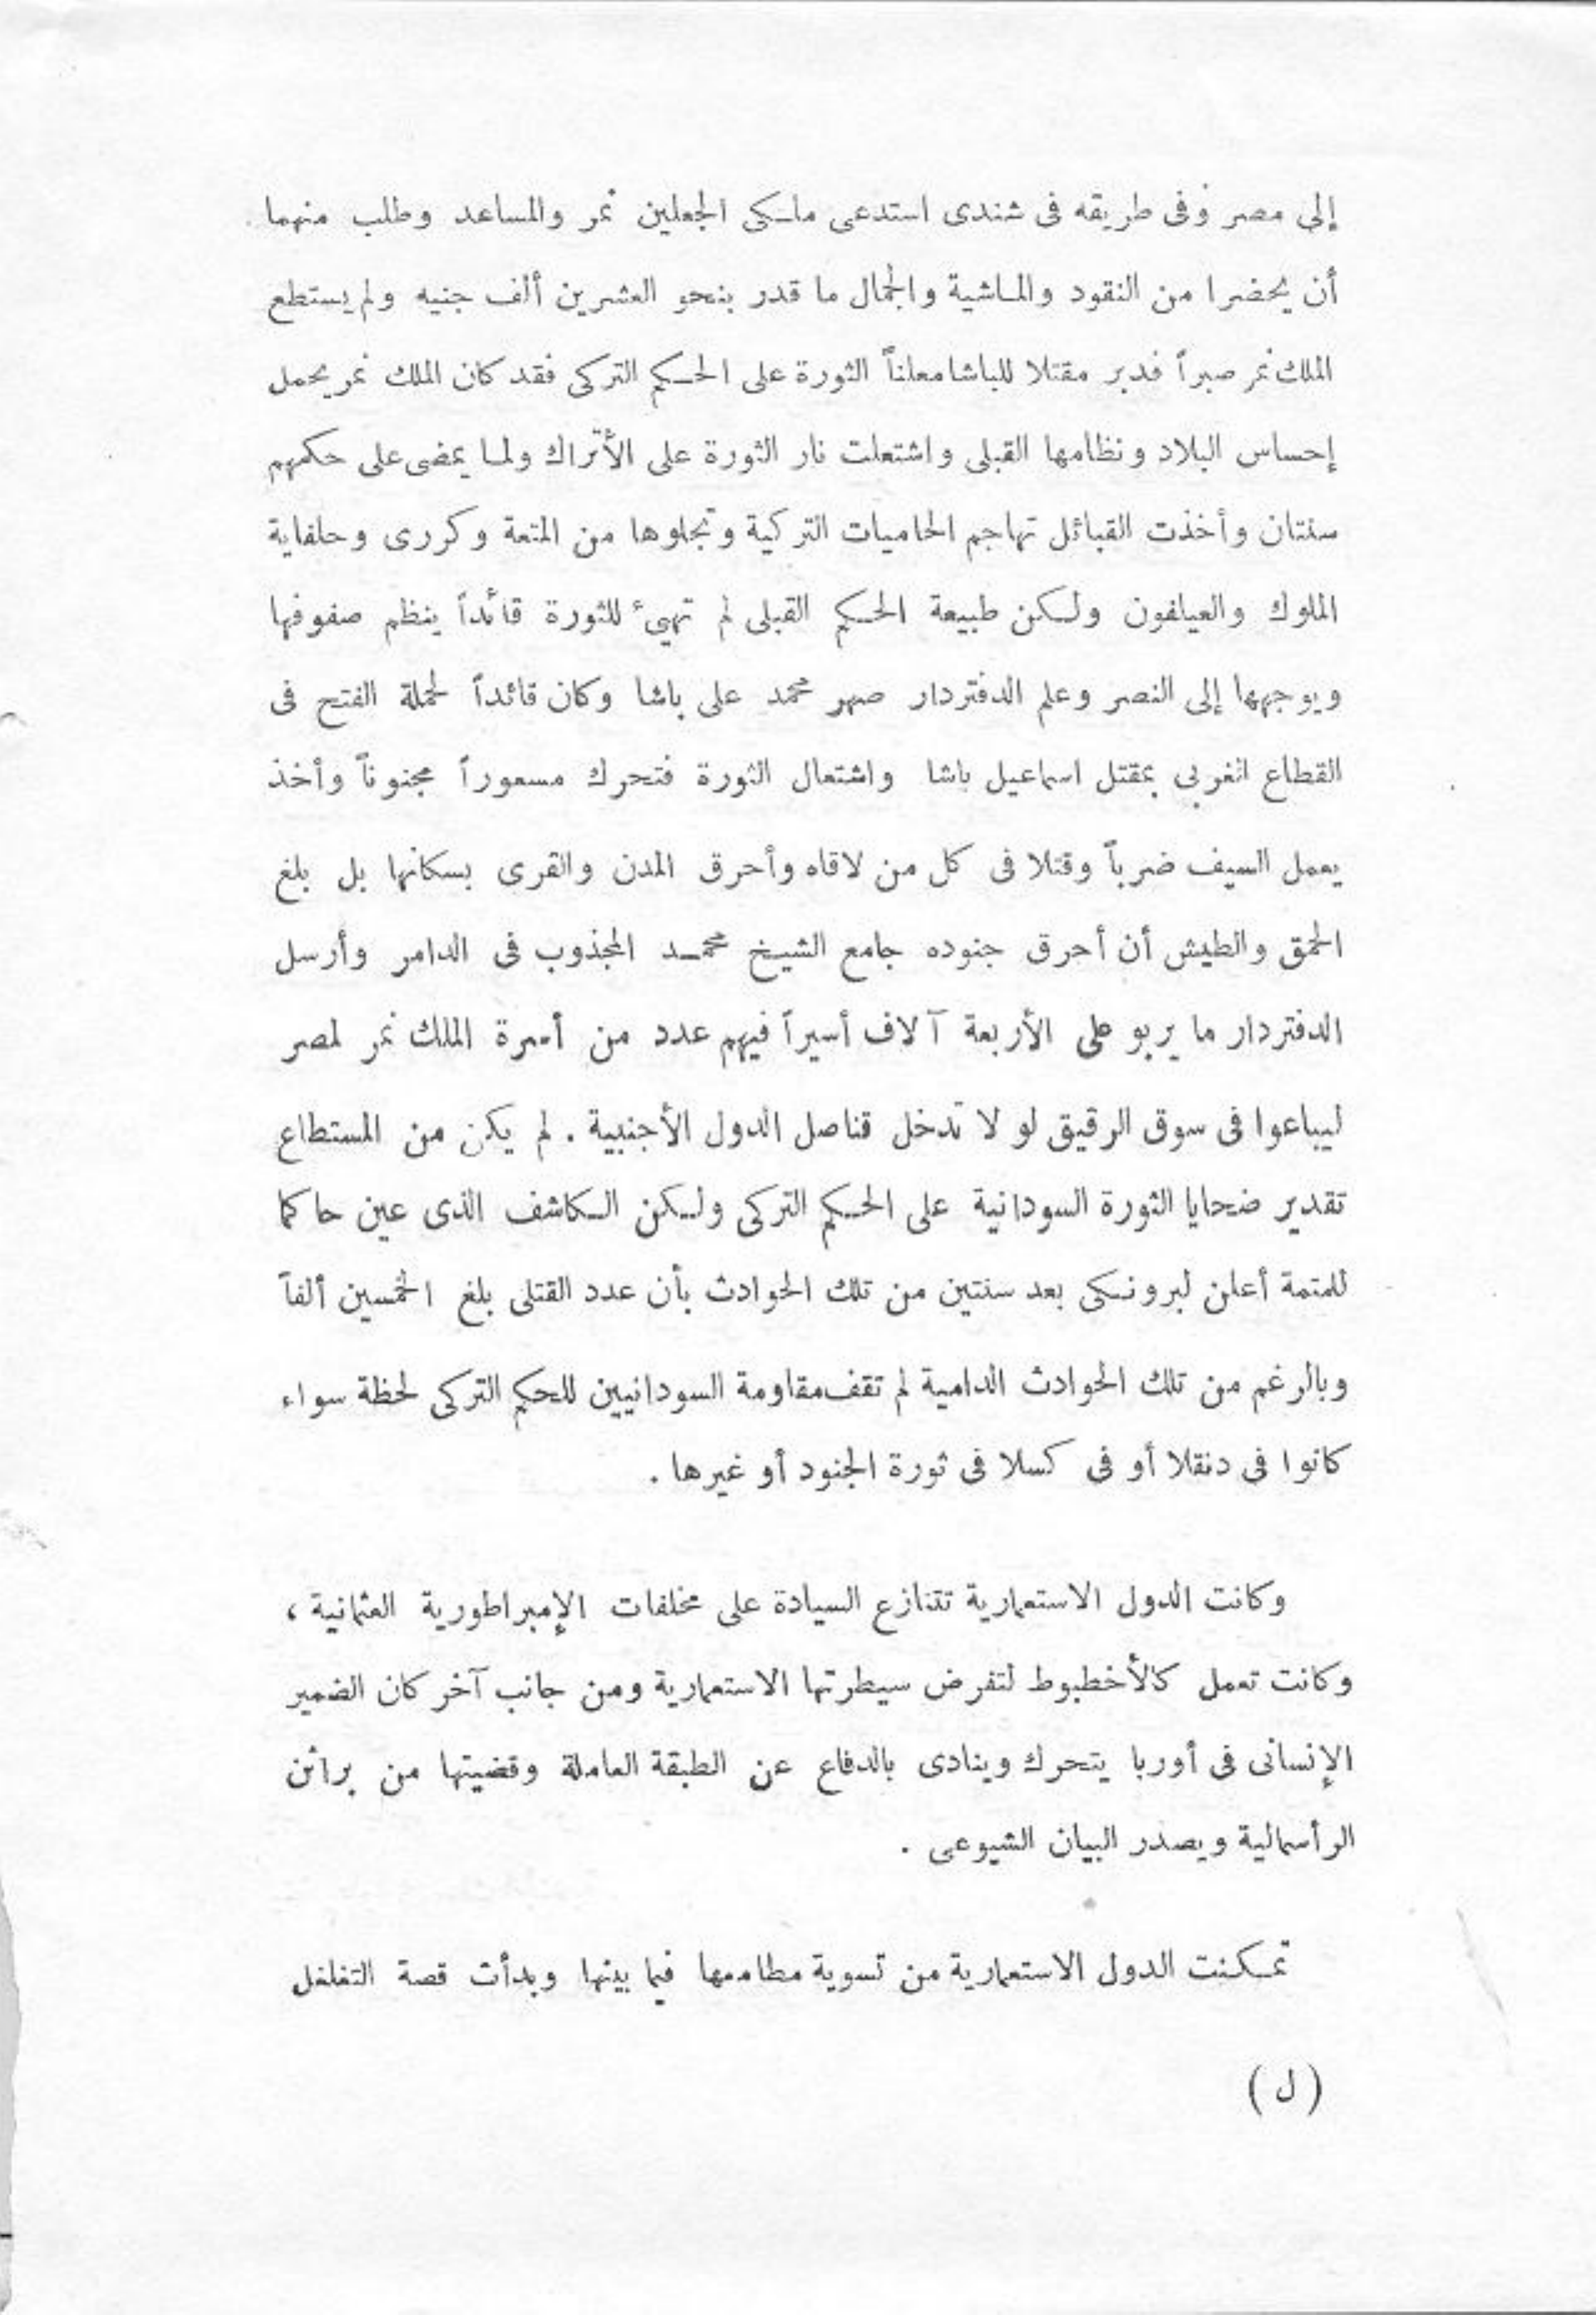 إلى مصر وفى طريقه فى شندى استدعى ملكى الجعلين نمر والمساعد وطلب منهما
أن يحضرا من النقود والماشية والجمال ما قدر بنحو العشرين ألف جنيه ولم يستطع
الملك نمر صبراً فدبر مقتلا للباشا معلناً الثورة على الحكم التركى فقد كان الملك نمر يحمل
إحساس البلاد ونظامها القبلى واشتعلت نار الثورة على الأتراك ولما يمضى على حكمهم
سنتان وأخذت القبائل تهاجم الحاميات التركية وتجلوها من المتمة وكررى وحلفاية
الملوك والعيلفون ولكن طبيعة الحكم القبلى لم تهىء للثورة قائداً ينظم صفوفها
ويوجهها إلى النصر وعلم الدفتردار صهر محمد على باشا وكان قائداً لحملة الفتح فى
القطاع الغربى بمقتل اسماعيل باشا واشتعال الثورة فتحرك مسعوراً مجنوناً وأخذ
يعمل السيف ضرباً وقتلا فى كل من لاقاه وأحرق المدن والقرى بسكانها بل بلغ
الحمق والطيش أن أحرق جنوده جامع الشيخ محمد المجذوب فى الدامر وأرسل
الدفتردار ما يربو على الأربعة آلاف أسيراً فيهم عدد من أسرة الملك نمر لمصر
ليباعوا فى سوق الرقيق لو لا تدخل قناصل الدول الأجنبية . لم يكن من المستطاع
تقدير ضحايا الثورة السودانية على الحكم التركى ولكن الكاشف الذى عين حاكما
للمتمة أعلن لبرونكى بعد سنتين من تلك الحوادث بأن عدد القتلى بلغ الخمسين ألفاً
وبالرغم من تلك الحوادث الدامية لم تقف مقاومة السودانيين للحكم التركى لحظة سواء
كانوا فى دنقلا أو فى كسلا فى ثورة الجنود أو غيرها .
وكانت الدول الاستعمارية تتنازع السيادة على مخلفات الإمبراطورية العثمانية ،
وكانت تعمل كالأخطبوط لتفرض سيطرتها الاستعمارية ومن جانب آخر كان الضمير
الإنسانى فى أوربا يتحرك وينادى بالدفاع عن الطبقة العاملة وقضيتها من براثن
الرأسمالية ويصدر البيان الشيوعى .
تمكنت الدول الاستعمارية من تسوية مطامعها فيما بينها وبدأت قصة التغلغل
( ل )